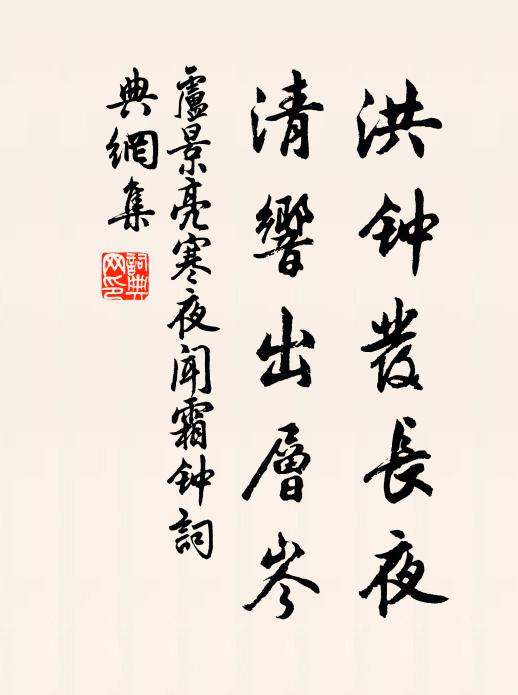 洪钟發長夜
清響出層岑
盧景亮寒夜闻霜钟詞
典網集
詞典
网印